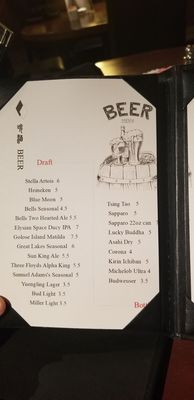 BEER
Draft
Stella Artois 6
Heineken 5
Blue Moon 5
Bells Seasonal 4.5
Bells Two Hearted Ale 5.5
Elysian Space Ducy IPA 7
Golose Island Matilda 7.5
Great Lakes Seasonal 6
Sun King Ale 5.5
Three Floyds Alpha King 5.5
Samuel Adams's Seasonal 5
Yuengling Lager 3.5
Bud Light 3.5
Miller Light 3.5
BEER
Tsing Tao 5
Sapporo 5
Sapporo 22oz can
Lucky Buddha 5
Asahi Dry 5
Corona 4
Kirin Ichiban 5
Michelob Ultra 4
Budweisser 3.5
Bott